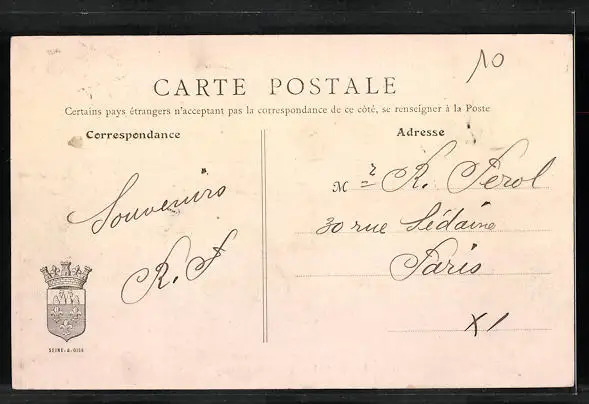 10
CARTE POSTALE
Certains pays étrangers n'acceptant pas la correspondance de ce côté, se renseigner à la Poste
Correspondance
Souvenirs
R. F
SEINE-&-OISE
Adresse
Mr R. Perol
30 rue Sédaine
Paris
XI